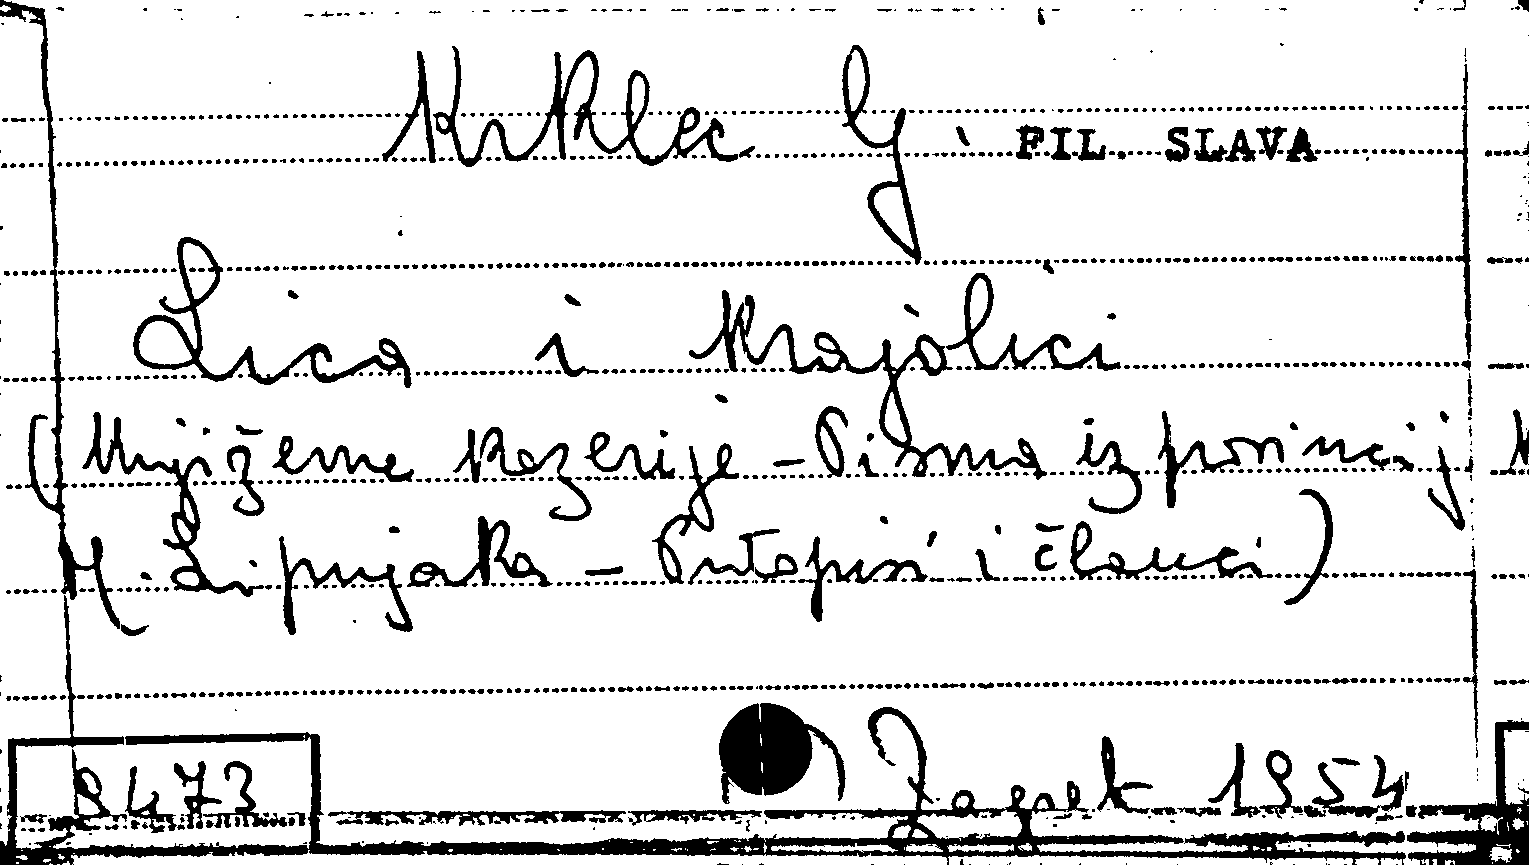 Krklec G. FIL. SLAVA
Lica i krajolici
(Umjižeme kozerije - Pisma iz provincij
M. Lipnjaka - Putopisi i članci)
Zagreb 1954
8473